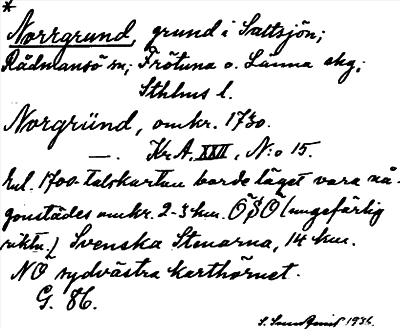 *
Norrgrund, grund i Saltsjön;
Rådmansö sn; Frötuna o. Länna skg;
Sthlms l.
Norgründ, omkr. 1730.
—. Kr.A. XXII, N:o 15.
Enl. 1700-talskartan borde läget vara nå-
gonstädes omkr. 2-3 km. ÖSÖ (ungefärlig
riktn.) Svenska Stenarna, 14 km.
NO sydvästra karthörnet.
G. 86.
1936.